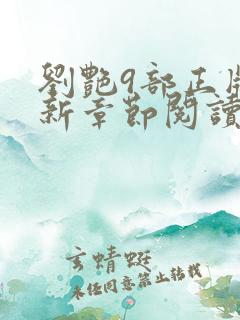 劉艷9部正版
新章節閱讀
玄蜻蜓
未经同意禁止转载